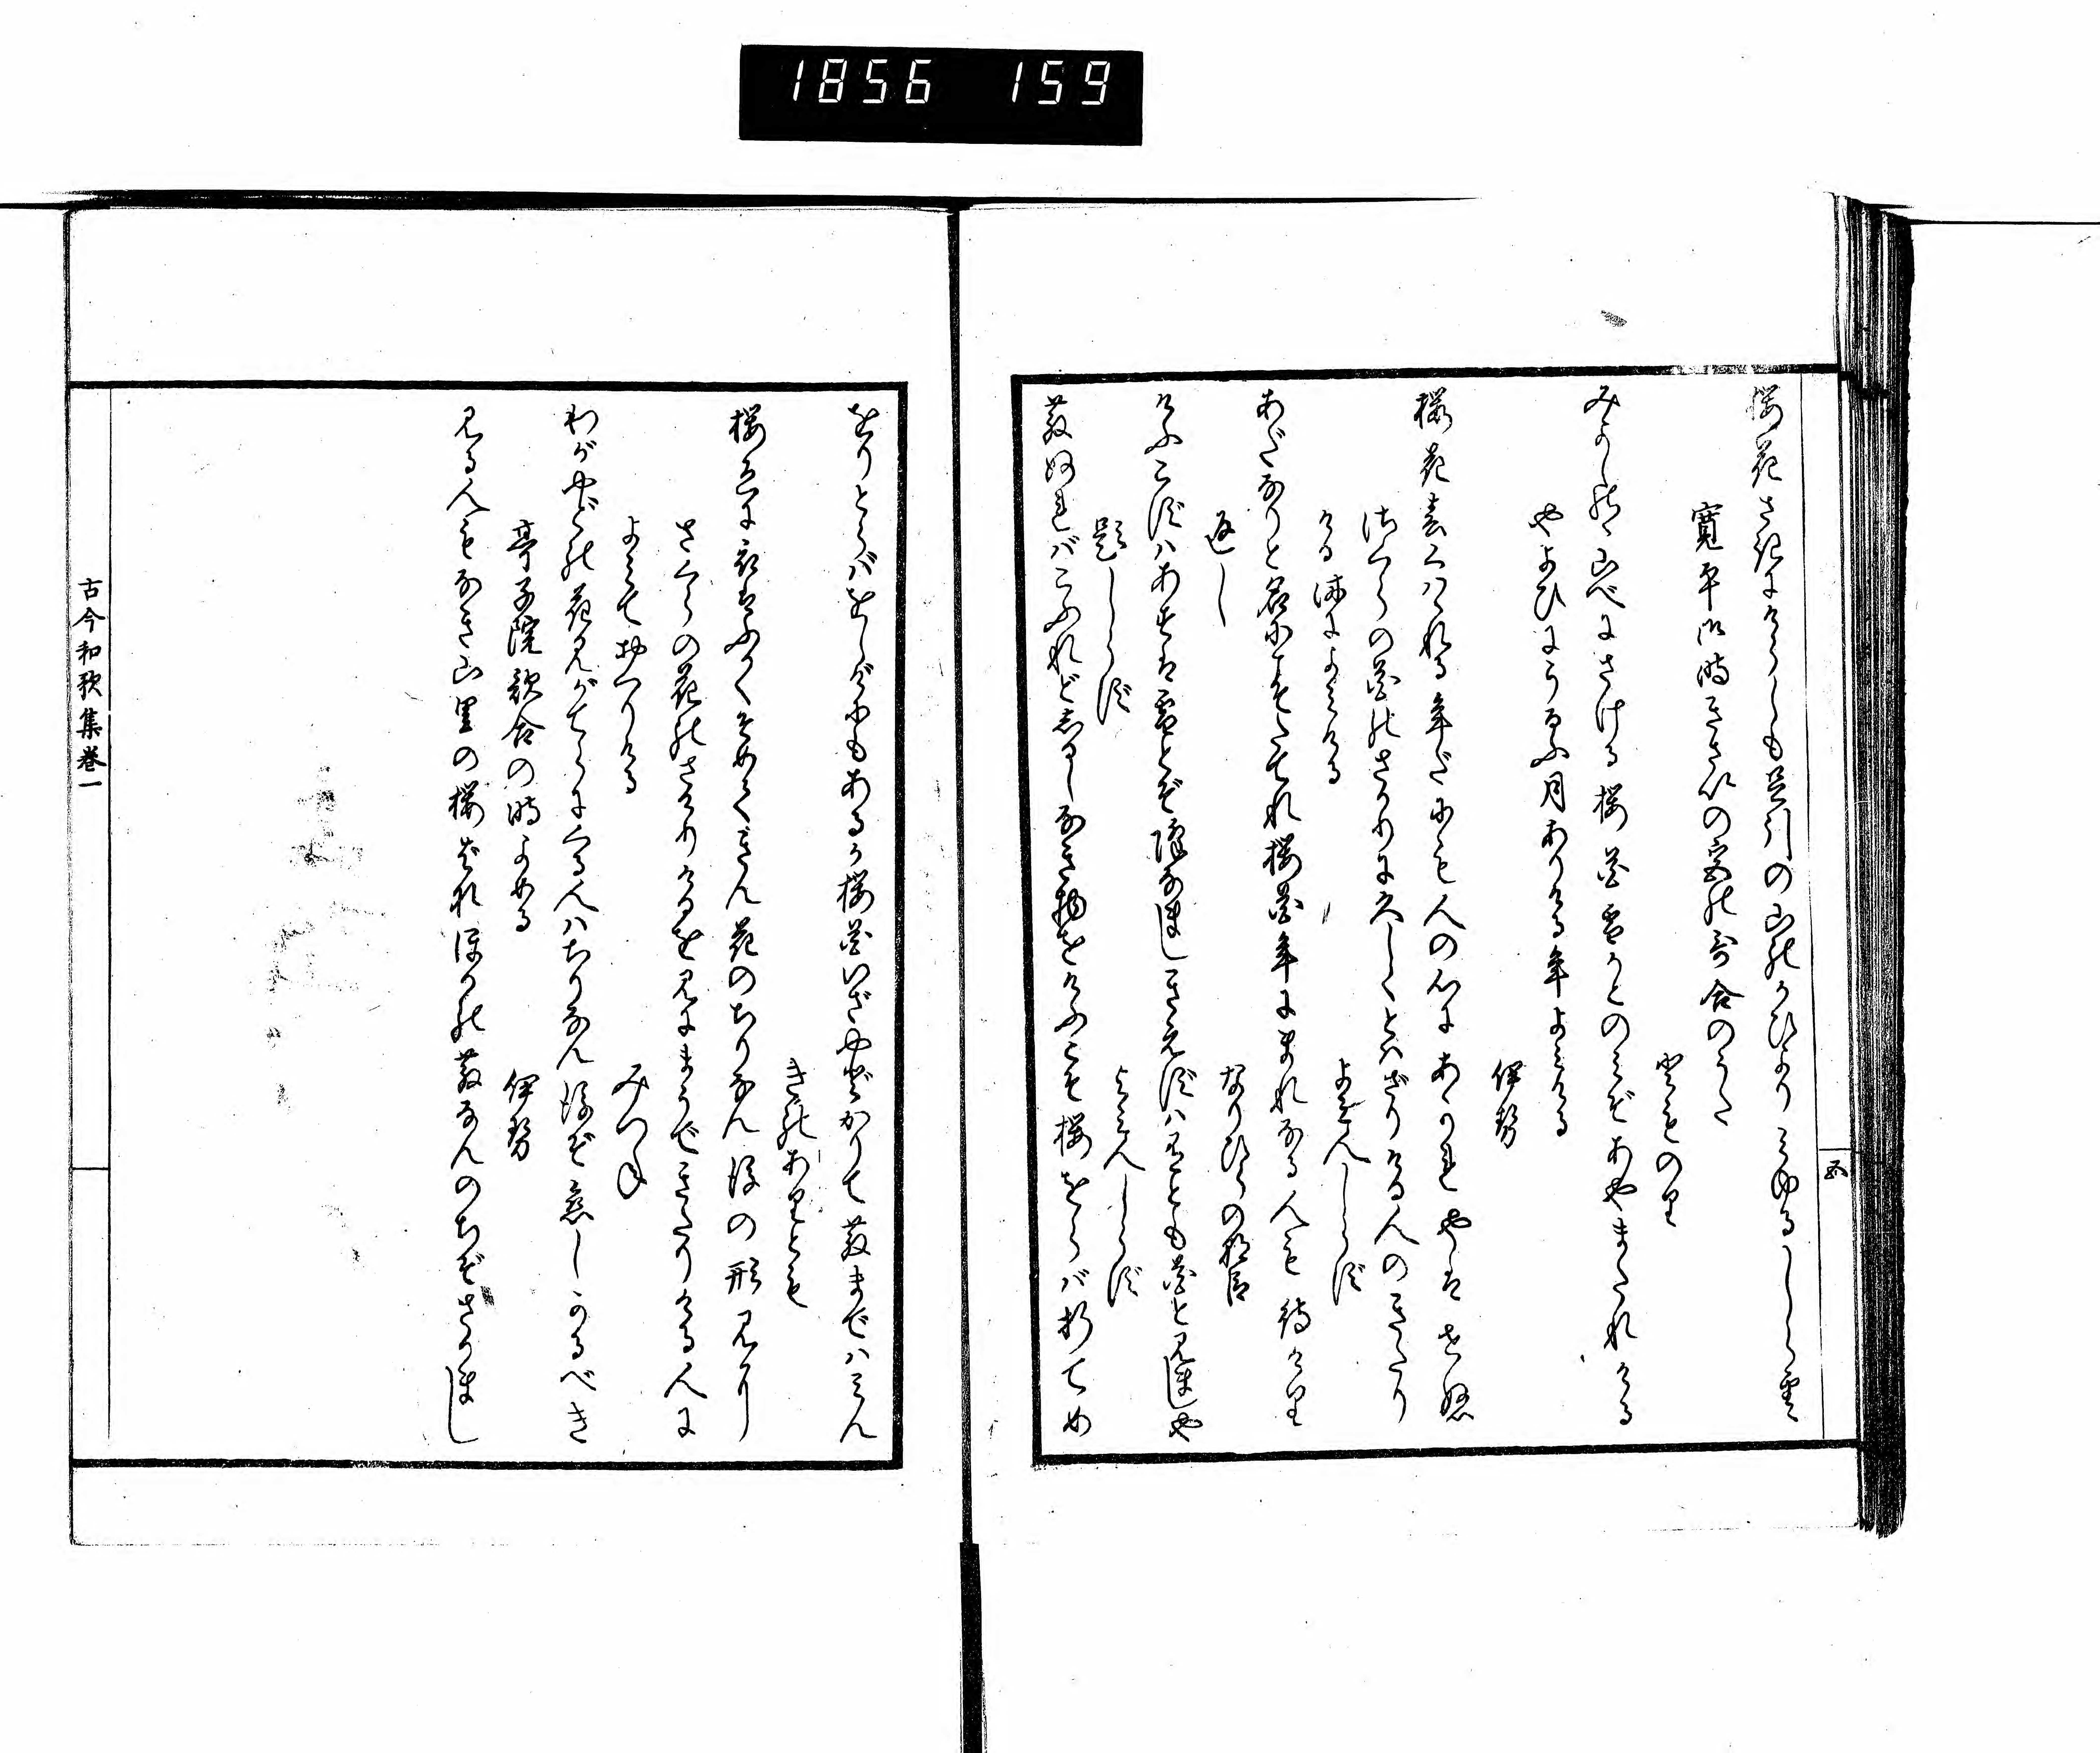 1856 159
五
桜花さきにけらしも足引の山のかひより見ゆるしら雲
寛平御時きさいの宮の哥合のうた
とものり
みよしのゝ山べにさける桜花雪かとのみぞあやまたれける
やよひにうるふ月ありける年よみける
伊勢
桜花春くはゝれる年だにも人の心にあかれやはせぬ
さくらの花のさかりに久しくとはざりける人のきたり
ける時によみける
よみ人しらず
あだなりと名にこそたてれ桜花年にまれなる人も待けり
返し
なりひらの朝臣
けふこずはあすは雪とぞ降なましきえずは有とも花と見ましや
題しらず
よみ人しらず
散ぬればこふれどしるしなき物をけふこそ桜をらば折てめ
をりとらばをしげにもあるか桜花いざやどかりて散まではみん
きのありとも
桜色に衣はふかくそめてきん花のちりなん後の形見に
さくらの花のさけりけるを見にまうできたりける人に
よみておくりける
みつね
わがやどの花見がてらにくる人はちりなん後ぞ恋しかるべき
亭子院歌合の時よめる
伊勢
見る人もなき山里の桜花ほかの散なんのちぞさかまし
古今和歌集巻一